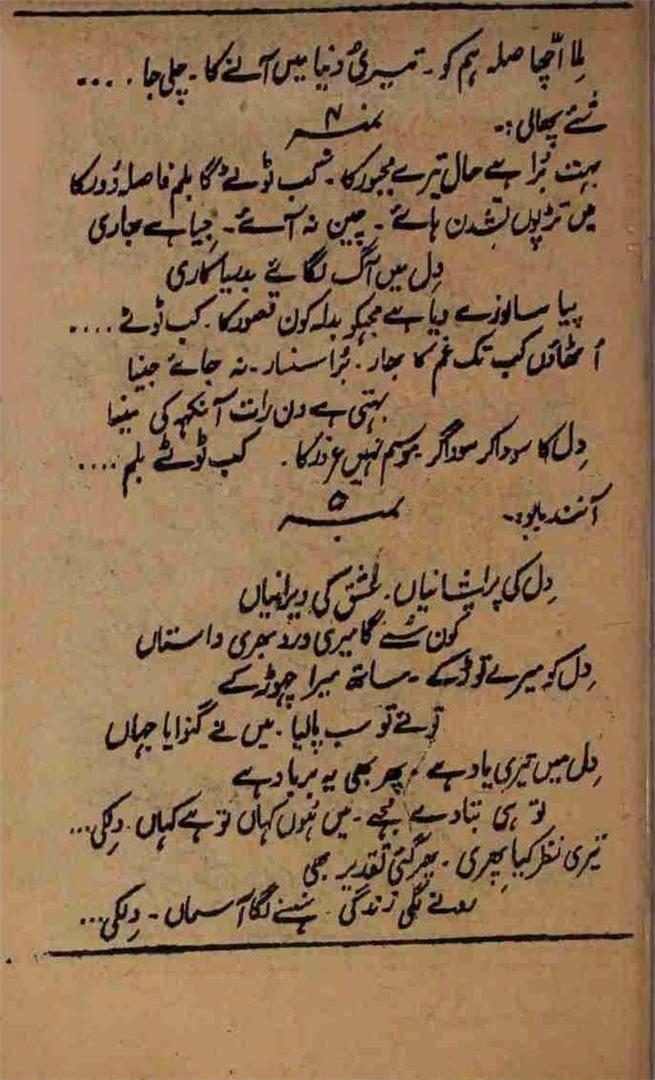 ملا اچھا صلہ ہم کو۔ تمہیری دنیا میں آنے کا۔ چلی جا ....
نمبر ۴
بہت برا ہے حال تیرے مجبور کا۔ کب ٹوٹے گا بلم فاصلہ دُور کا
میں تڑپوں نشدن ہائے۔ چین نہ آئے۔ جیا ہے بھاری
دِل میں آگ لگائے بدریا کاری
پیا سانورے دیا ہے مجھکو بدلہ کون قصور کا۔ کب ٹوٹے ....
اُٹھاؤں کب تک غم کا بھار۔ بُرا سنسار۔ نہ جائے جینا
بہتی ہے دن رات آنکھ کی مینا
دِل کا سودا کر سوداگر موسم نہیں غرور کا۔ کب ٹوٹے بلم ....
آنند بابو:۔ نمبر ۵
دِل کی پریشانیاں۔ عشق کی ویرانیاں
کون سُنے گا میری درد بھری داستاں
دِل کو میرے توڑ کے۔ ساتھ میرا چھوڑ کے
تُو نے تو سب پالیا۔ میں نے گنوایا جہاں
دِل میں تیری یاد ہے۔ پھر بھی یہ برباد ہے
تو ہی بتادے مجھے۔ میں ہُوں کہاں تو ہے کہاں۔ دِلکی...
تیری نظر کیا پھِری۔ پھر گئی تقدیر بھی
رونے لگی زندگی۔ ہنسنے لگا آسماں۔ دِلکی...